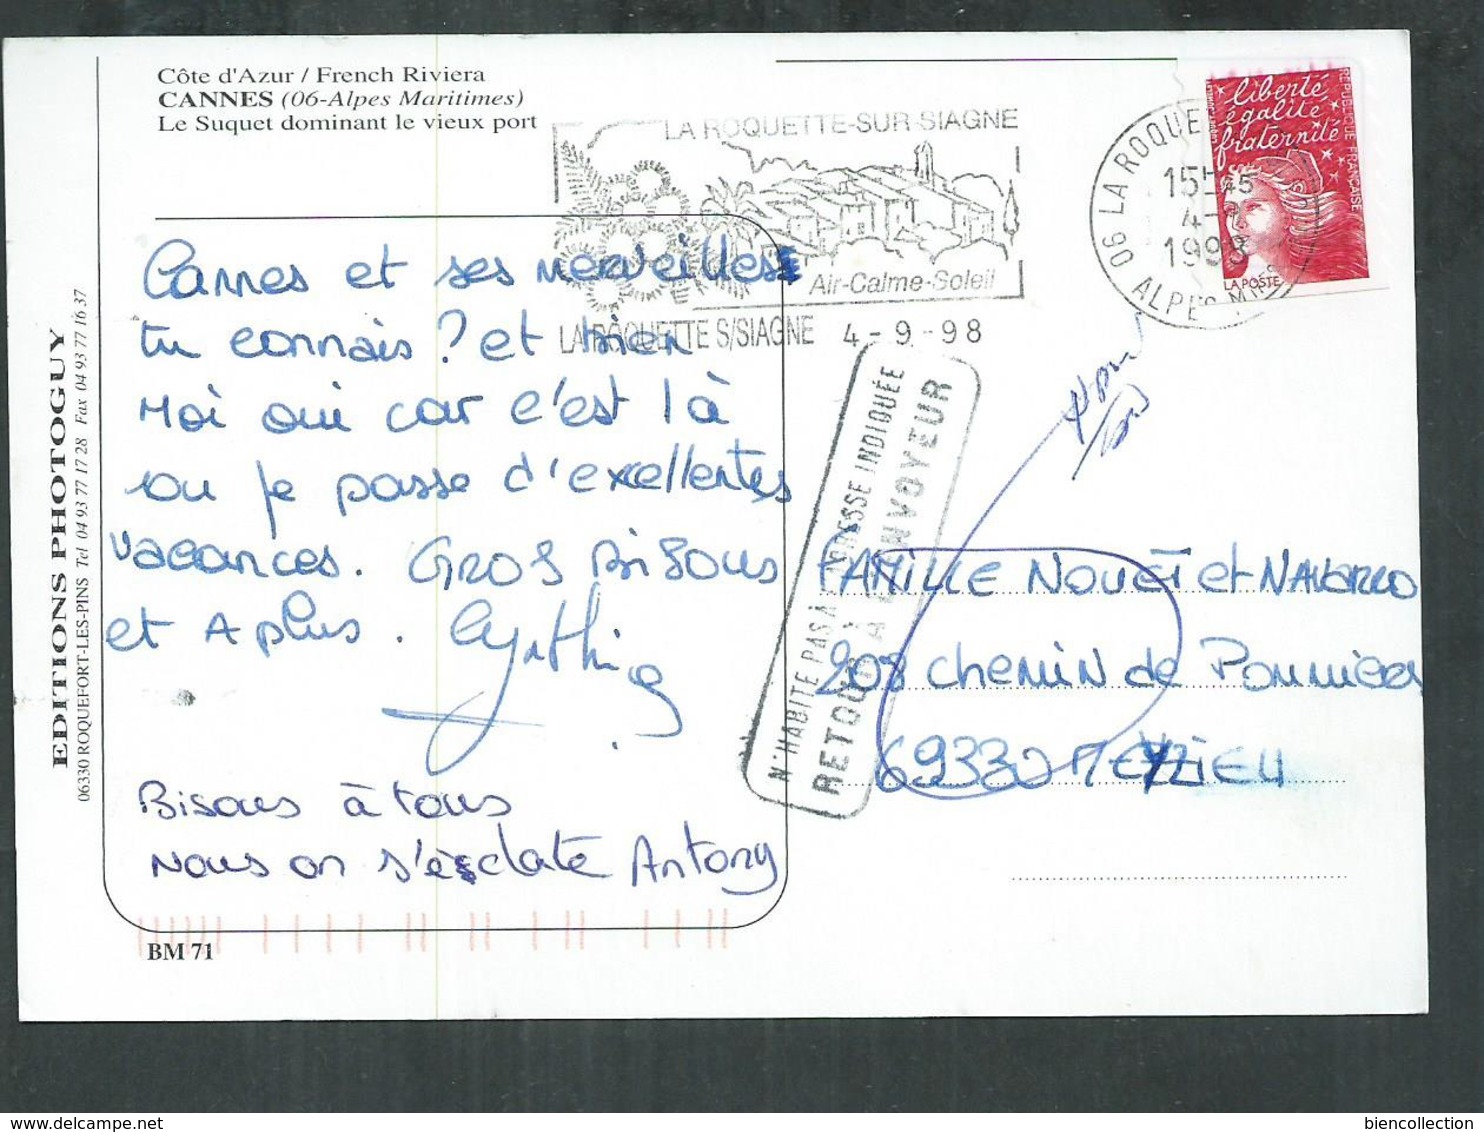 Côte d'Azur / French Riviera
CANNES (06-Alpes Maritimes)
Le Suquet dominant le vieux port
LA ROQUETTE-SUR-SIAGNE
Air-Calme-Soleil
LA ROQUETTE S/SIAGNE 4-9-98
06 LA ROQUE
15H45
4-9
1998
ALPES MMES
liberté
égalité
fraternité
REPUBLIQUE FRANÇAISE
LA POSTE
Cannes et ses merveilles
tu connais ? et bien
Moi oui car c'est là
ou je passe d'excellentes
vacances. GROS BISOUS
et A plus. Cynthia
Bisous à tous
Nous on s'éclate Antony
N'HABITE PAS À L'ADRESSE INDIQUÉE
RETOUR À L'ENVOYEUR
FAMILLE NOUËT et NAVARRO
208 chemin de Pommier
69330 MEYZIEU
EDITIONS PHOTOGUY
06330 ROQUEFORT-LES-PINS Tel 04 93 77 17 28 Fax 04 93 77 16 37
BM 71
biencollection